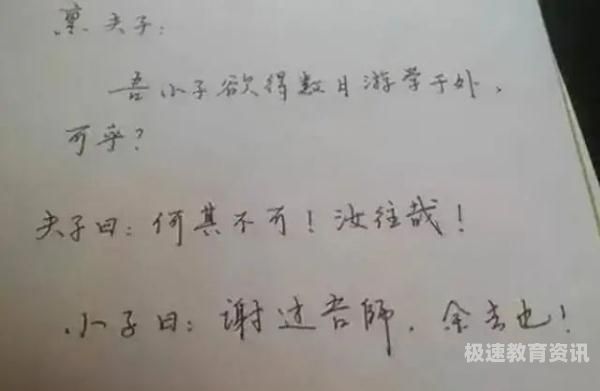 禀夫子：
吾小子欲得数日游学于外，
可乎？
夫子曰：何其不可！汝往哉！
小子曰：谢过吾師，余去也！
极速教育资讯